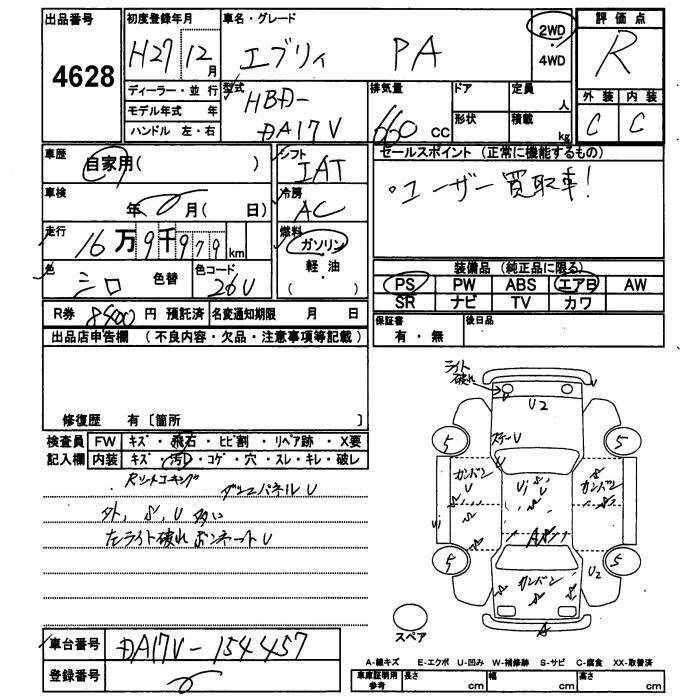 出品番号
4628
初度登録年月
H27 12月
ディーラー・並 行
モデル年式 年
ハンドル 左・右
車名・グレード
エブリィ PA
2WD
・
4WD
型式
HBD-
DA17V
排気量
660 CC
ドア
形状
定員
人
積載
kg
評価点
R
外装 内装
C C
車歴
自家用( )
車検
年 月( 日)
走行
16万9千979km
色
シロ 色替
色コード
26U
シフト
IAT
冷房
AC
燃料
ガソリン
軽・油
( )
セールスポイント (正常に機能するもの)
・ユーザー買取車!
装備品 (純正品に限る)
PS PW ABS エアB AW
SR ナビ TV カワ
R券 8400円 預託済 名変通知期限 月 日
保証書
有・無
後日品
出品店申告欄 (不良内容・欠品・注意事項等記載)
修復歴 有〔箇所 〕
検査員 FW キズ・飛石・ヒビ割・リペア跡・X要
記入欄 内装 キズ・汚れ・コゲ・穴・スレ・キレ・破レ
ダッシュパネルU
外、S、U 多い
左ライト破れ ボンネットU
ライト
破れ
U
U2
ステーU
5 5
カンバン
U
Ui
カンバン
Ui
A
5 5
カンバン
U2
A
スペア
A-線キズ E-エクボ U-凹み W-補修跡 S-サビ C-腐食 XX-取替済
車台番号 DA17V-154457
登録番号
車庫証明用
参考
長さ cm 幅 cm 高さ cm